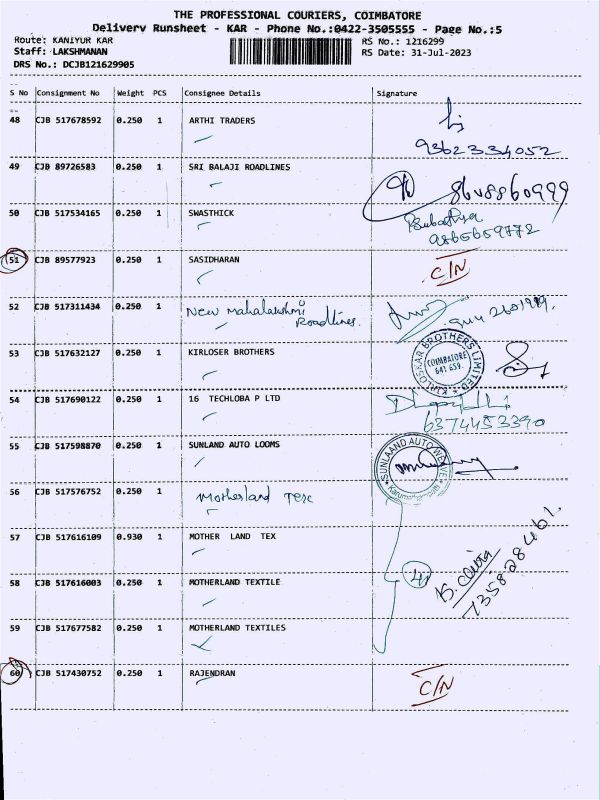 THE PROFESSIONAL COURIERS, COIMBATORE
Delivery Runsheet - KAR - Phone No.:0422-3505555 - Page No.:5
Route: KANIYUR KAR
RS No.: 1216299
Staff: LAKSHMANAN
RS Date: 31-Jul-2023
DRS No.: DCJB121629905
S No Consignment No Weight PCS Consignee Details Signature
48 CJB 517678592 0.250 1 ARTHI TRADERS
9362334052
49 CJB 89726583 0.250 1 SRI BALAJI ROADLINES
50 CJB 517534165 0.250 1 SWASTHICK
9865659772
51 CJB 89577923 0.250 1 SASIDHARAN C/N
52 CJB 517311434 0.250 1 New Mahalakshmi
Roadlines.
53 CJB 517632127 0.250 1 KIRLOSER BROTHERS
KIRLOSKAR BROTHERS LIMITED
COIMBATORE
641 659.
54 CJB 517690122 0.250 1 16 TECHLOBA P LTD
6374453390
55 CJB 517598870 0.250 1 SUNLAND AUTO LOOMS
SUNLAAND AUTO WEAVE
56 CJB 517576752 0.250 1 Motherland Tex
57 CJB 517616109 0.930 1 MOTHER LAND TEX
58 CJB 517616003 0.250 1 MOTHERLAND TEXTILE
7358428461.
59 CJB 517677582 0.250 1 MOTHERLAND TEXTILES
60 CJB 517430752 0.250 1 RAJENDRAN C/N